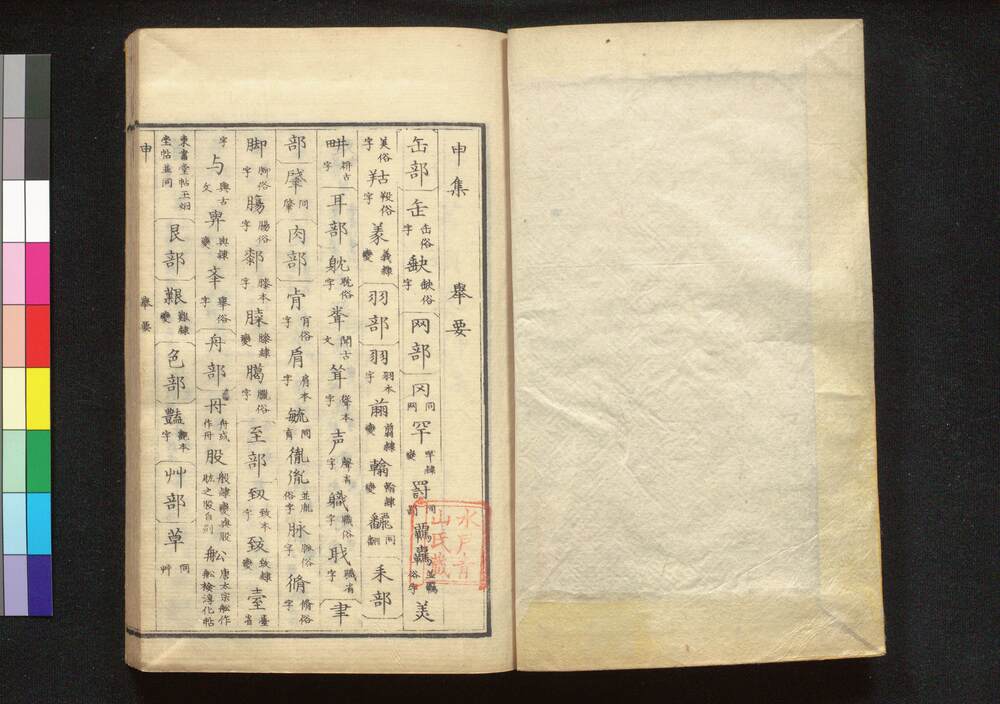 申集　舉要
缶部 缶 缶俗字 缺 缺俗字 网部 冈 同网 罕 罕隷變 罸 同罰 並羈俗字 美
美俗字 羖 羖俗字 義隷變 羽部 羽 羽本字 翦隷變 翰 翰隷變 飜 同翻 耒部
畊 耕古字 耳部 躭 耽俗字 聞古文 聳本字 声 聲省字 軄 職俗字 聀 職省字 聿
部 肈 同肇 肉部 肯俗字 肩 肩本字 毓 同育 胤 並胤俗字 脉 脈俗字 脩俗字
脚 腳俗字 膓 腸俗字 膝本字 膝隷變 臈 臘俗字 至部 致 致本字 致隷變 臺省
字 与 與古文 與隷變 舉俗字 舟部 舟 舟或作 股 般隷變與股肱之股自別 舩 唐太宗船作舩 淳化帖
東書堂帖王 坐帖並同 艮部 艱 艱隷變 色部 豔 艷本字 艸部 草 同艸
申　舉要
水戶青山氏藏